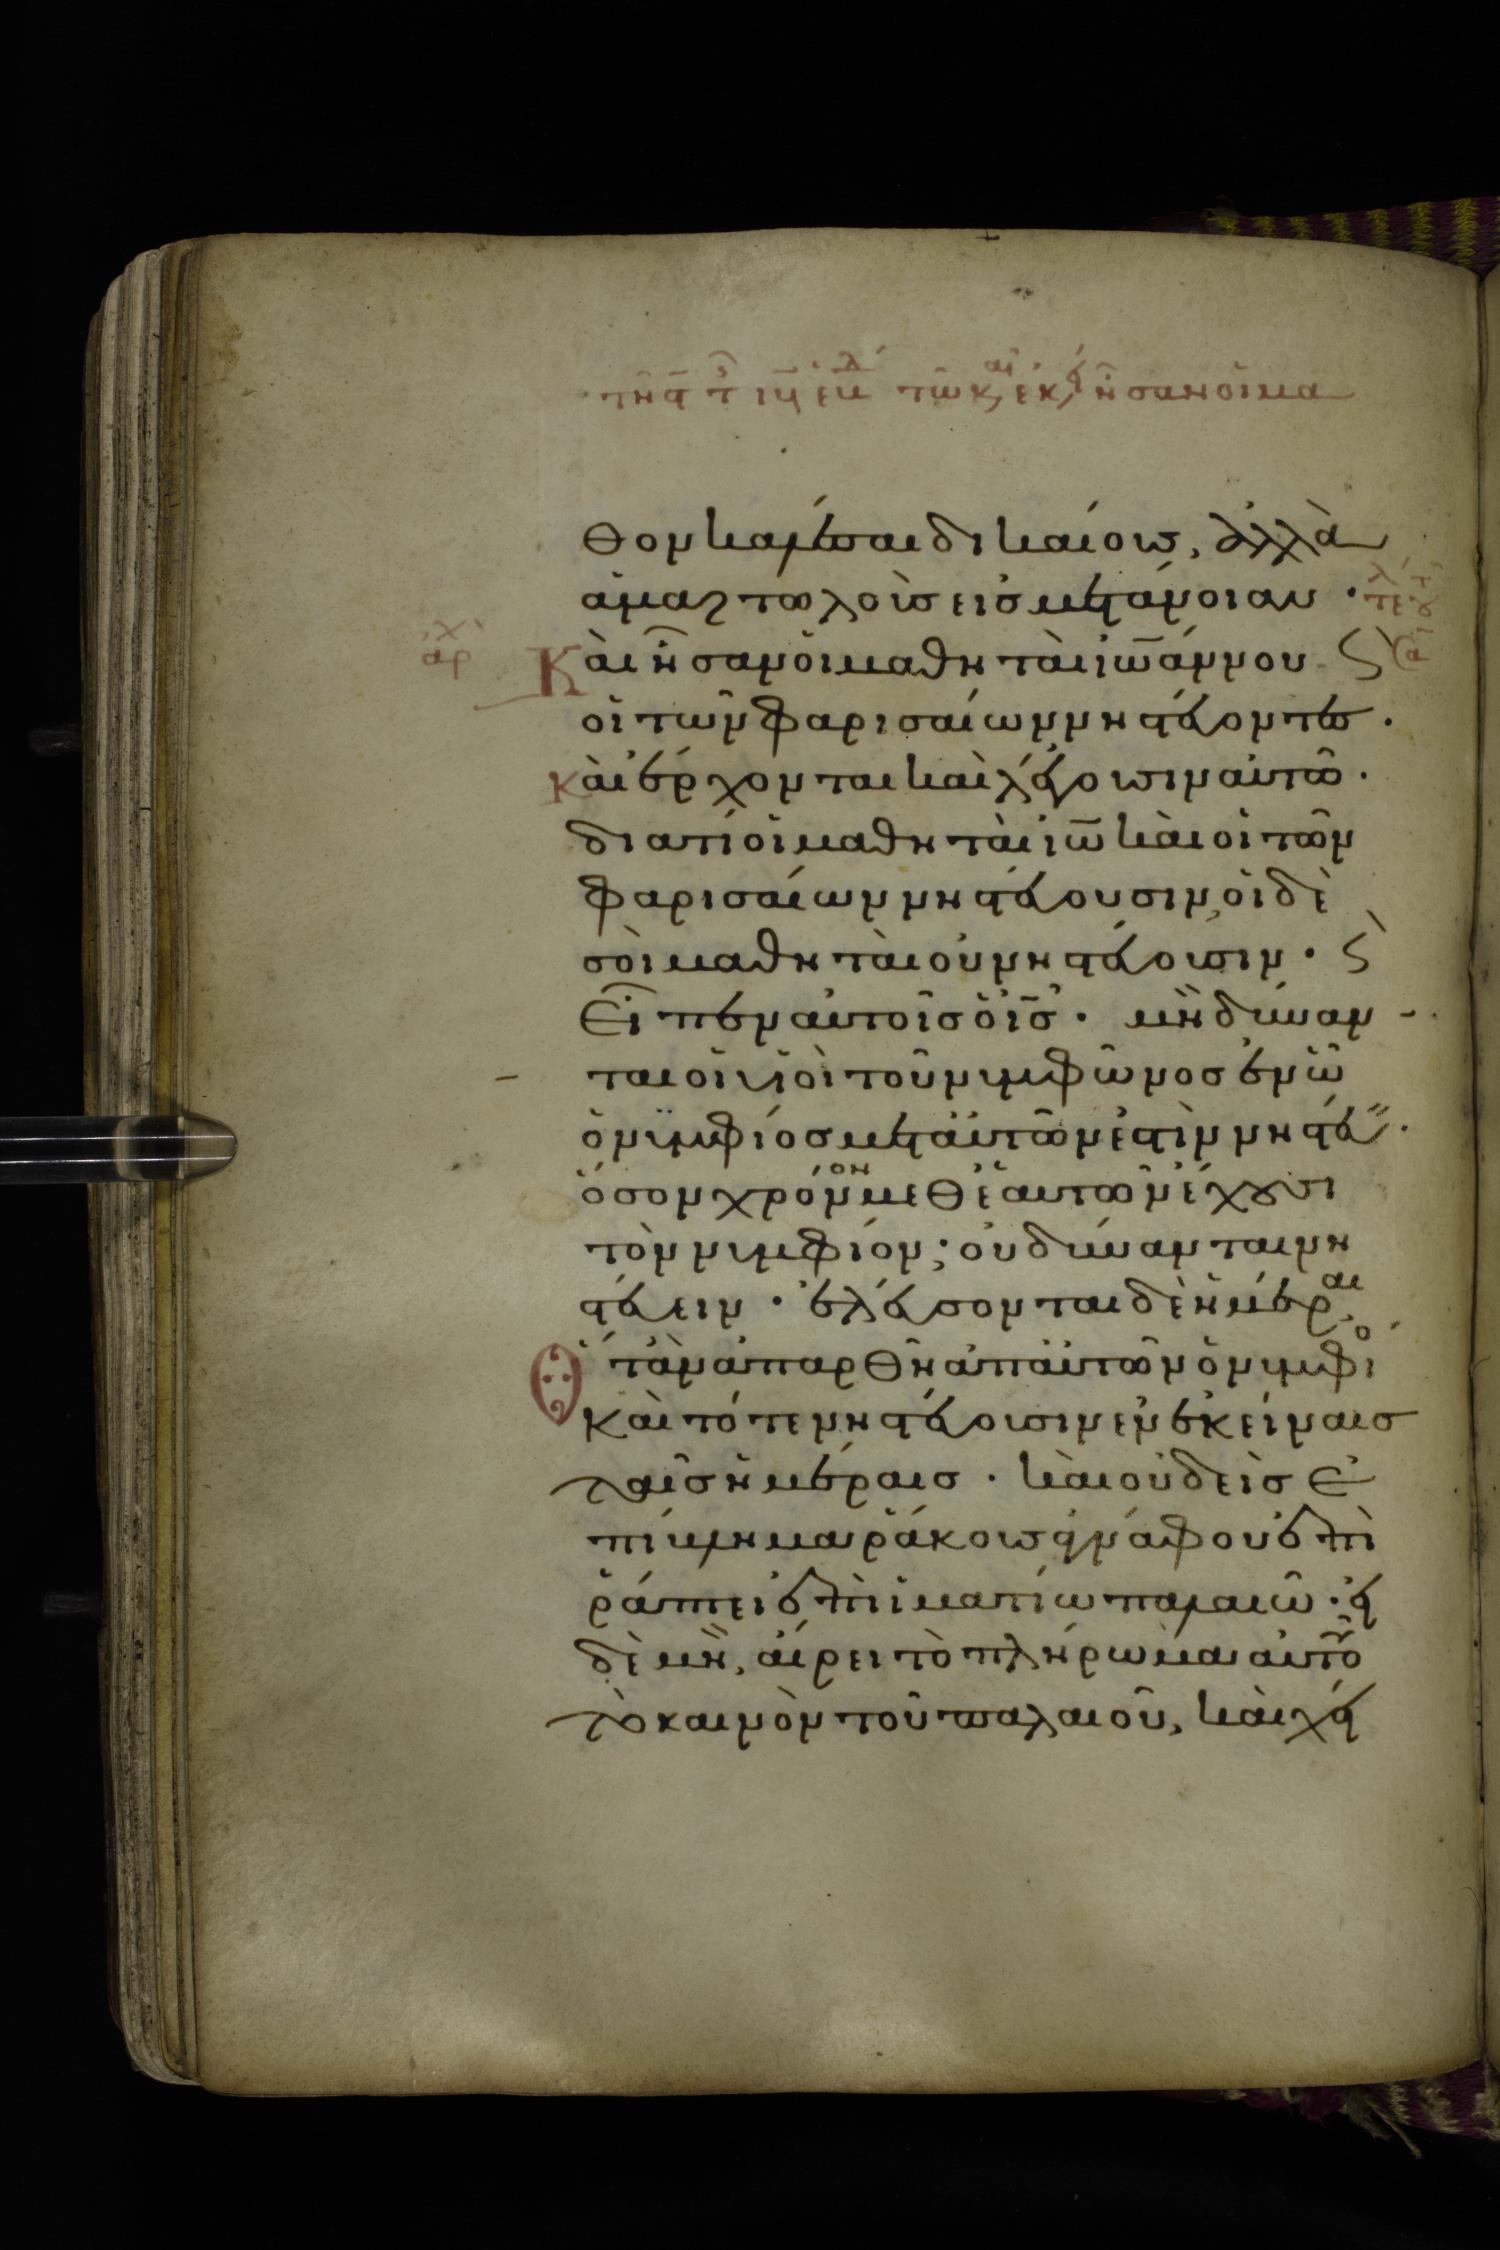 τῶ κ, ἐκ, ἦσαν οἱ μα
θον καλέσαι δικαίους, ἀλλὰ
ἁμαρτωλοὺς εἰς μετάνοιαν·
Καὶ ἦσαν οἱ μαθηταὶ ἰωάννου ϛ
οἱ τῶν φαρισαίων νηστεύοντες.
καὶ ἔρχονται καὶ λέγουσιν αὐτῶ.
διατί οἱ μαθηταὶ ἰω καὶ οἱ τῶν
φαρισαίων νηστεύουσιν, οἱ δὲ
σοὶ μαθηταὶ οὐ νηστεύουσιν· ϛ
Εἶπεν αὐτοῖς ὁ ἰς· μὴ δύναν
ται οἱ υἱοὶ τοῦ νυμφῶνος ἐν ὧ
ὁ νυμφίος μετ αὐτῶν ἐστὶν νηστεύ.
ὅσον χρόνον μεθ ἑαυτῶν ἔχουσι
τὸν νυμφίον· οὐ δύνανται νη
στεύειν· ἐλεύσονται δὲ ἡμέραι
Ὅταν ἀπαρθῆ ἀπ αὐτῶν ὁ νυμφίο
καὶ τότε νηστεύουσιν ἐν ἐκείναις
ταῖς ἡμέραις· καὶ οὐδεὶς ἐ
πίβλημα ῥάκους ἀγνάφου ἐπι
ῥάπτει ἐπὶ ἱματίω παλαιῶ· εἰ
δὲ μὴ, αἴρει τὸ πλήρωμα αὐτοῦ
τὸ καινὸν τοῦ παλαιοῦ, καὶ χεῖ